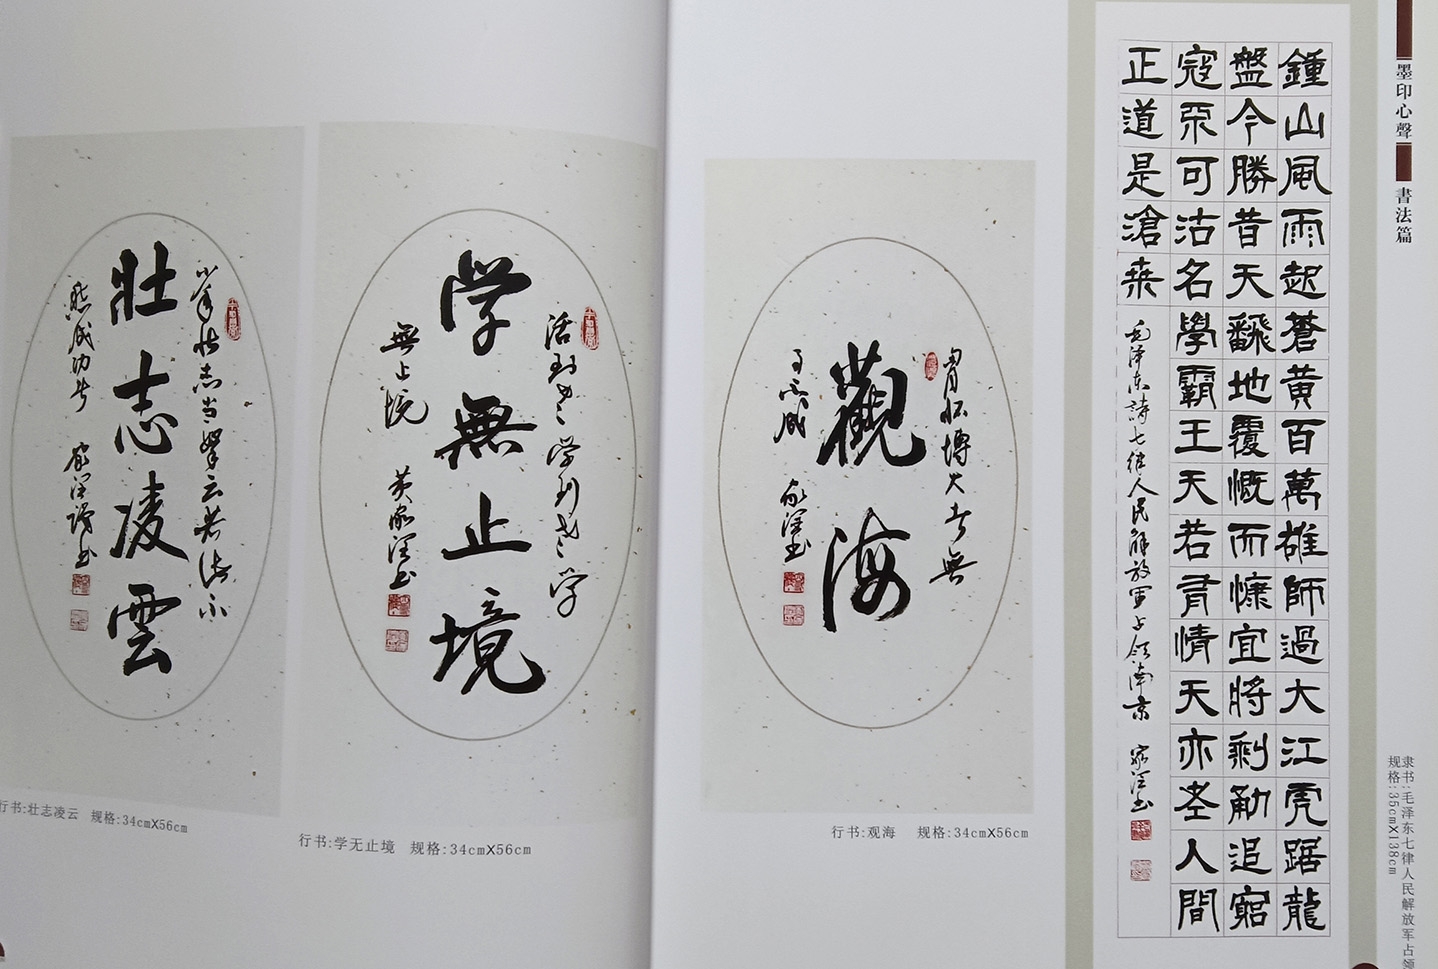 壮志凌雲
行书:壮志凌云 规格:34cmX56cm
活到老学到老学
学無止境
無止境 黄家泽书
行书:学无止境 规格:34cmX56cm
胸怀博大者無
觀海
事不成 家泽书
行书:观海 规格:34cmX56cm
墨印心聲
書法篇
鍾山風雨起蒼黄百萬雄師過大江虎踞龍
盤今勝昔天翻地覆慨而慷宜將剩勇追窮
寇不可沽名學霸王天若有情天亦老人間
正道是滄桑
毛泽东詩七律人民解放軍占领南京 家泽书
隶书:毛泽东七律人民解放军占领
规格:35cmX138cm